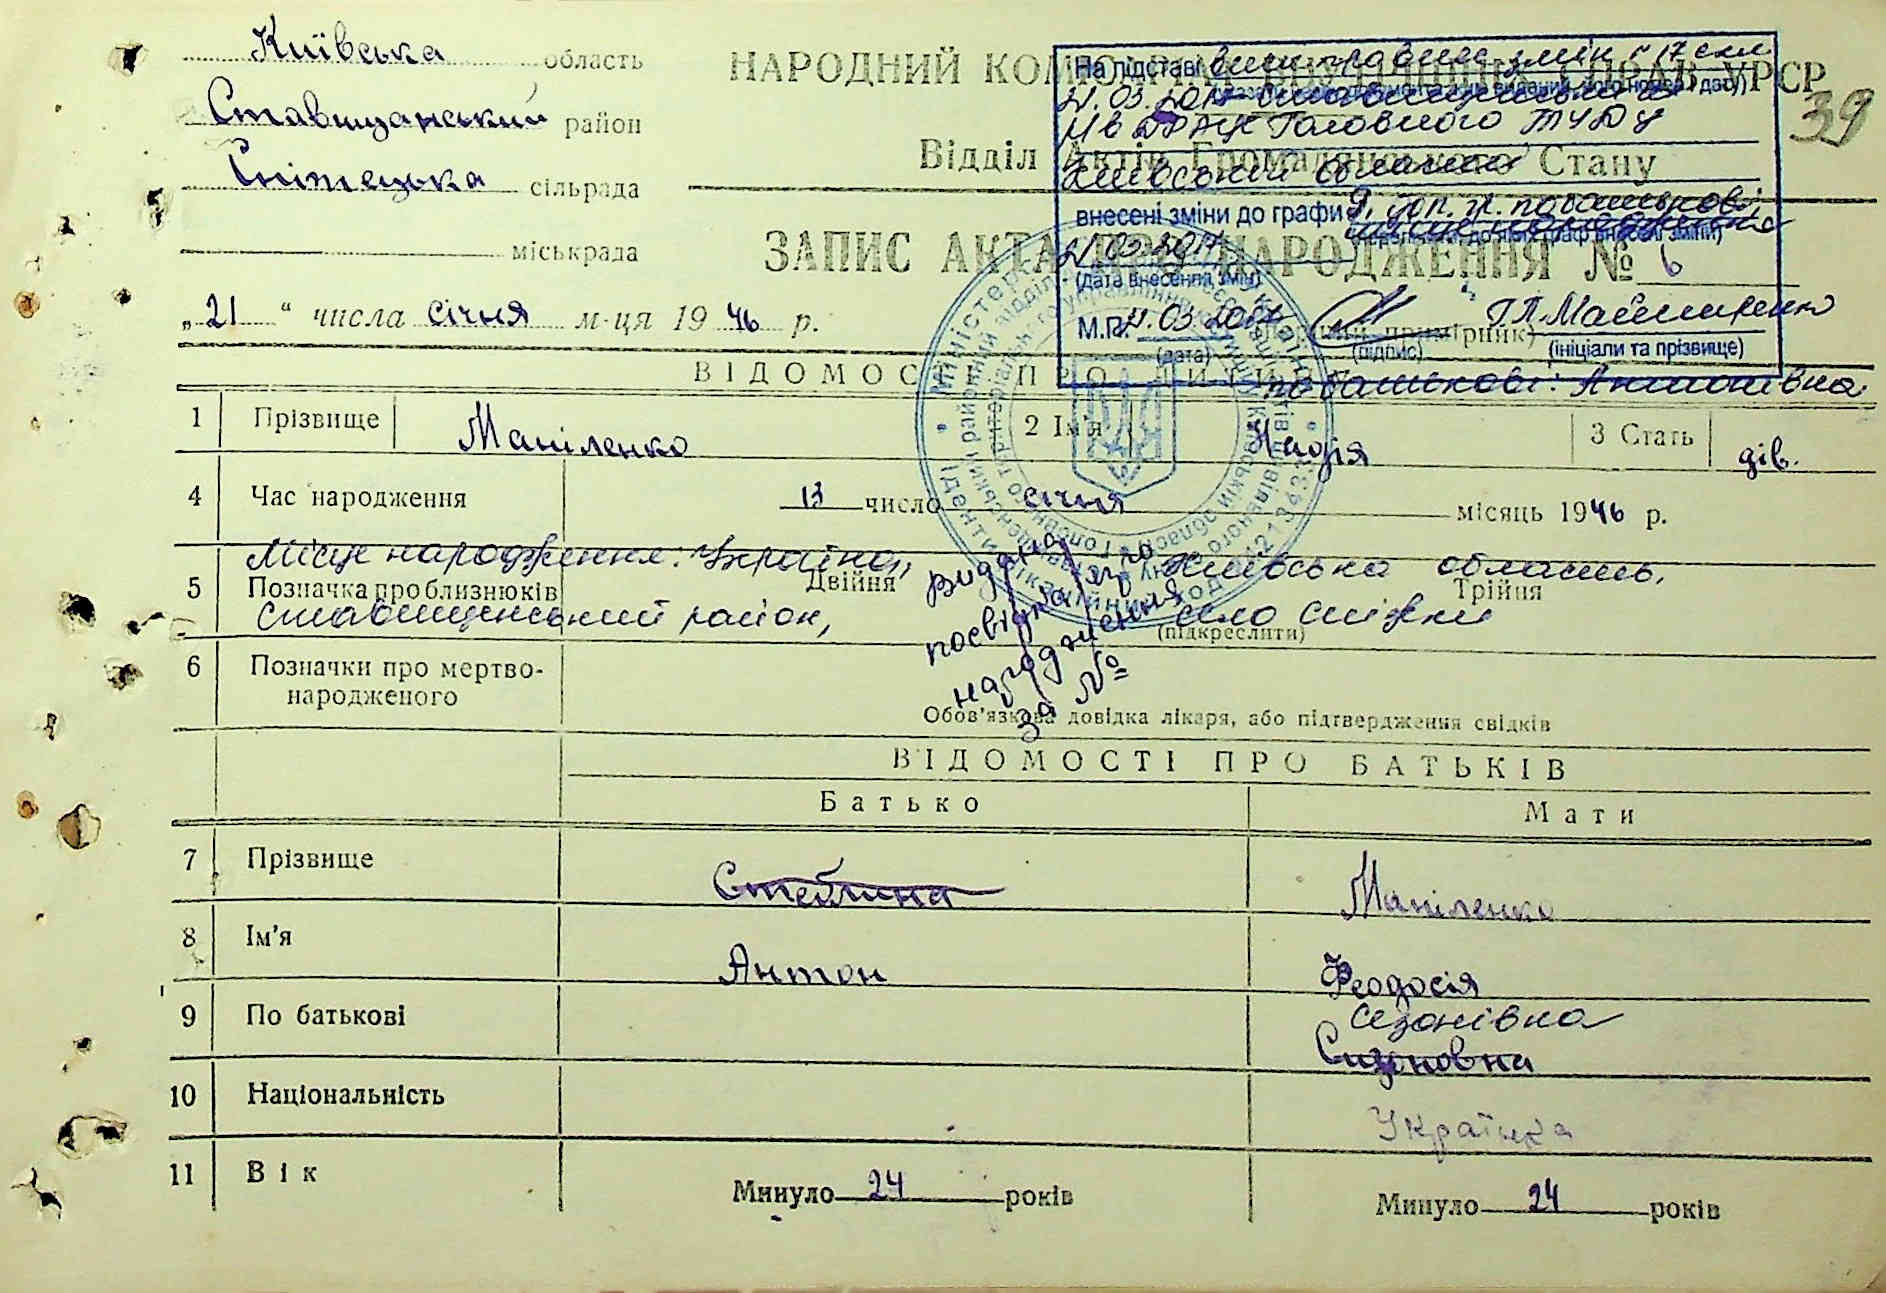 Київська область
НАРОДНИЙ КОМІСАРІАТ ВНУТРІШНІХ СПРАВ УРСР
39
Ставищанський район
Відділ Актів Громадянського Стану
Снітецька сільрада
міськрада
ЗАПИС АКТА ПРО НАРОДЖЕННЯ № 6
„21“ числа січня м-ця 1946 р.
(перший примірник)
На підставі виправлен. змін № 17 скл.
21.03.2017 Ставищенським р.
ДРАЦС Головного ТУЮ у
Київській області
внесені зміни до графи 9, доп. гр. по батькові,
місце народження
21.03.2017
(дата внесення змін)
М.П. 21.03.2017
(дата) (підпис) (ініціали та прізвище)
ВІДОМОСТІ ПРО ДИТИНУ
по батькові: Антонівна
1 Прізвище Маніленко 2 Ім'я Надія 3 Стать дів.
4 Час народження 13 число січня місяць 1946 р.
Місце народження: Україна, Київська область,
5 Позначка про близнюків Двійня Трійня
Ставищенський район, село Сніжки
(підкреслити)
видано
посвідка про
народження
за №
6 Позначки про мертво-
народженого
Обов'язкова довідка лікаря, або підтвердження свідків
ВІДОМОСТІ ПРО БАТЬКІВ
Батько Мати
7 Прізвище Маніленко
8 Ім'я Антон Феодосія
9 По батькові Сезонівна
Сизоновна
10 Національність Українка
11 Вік Минуло 24 років Минуло 24 років